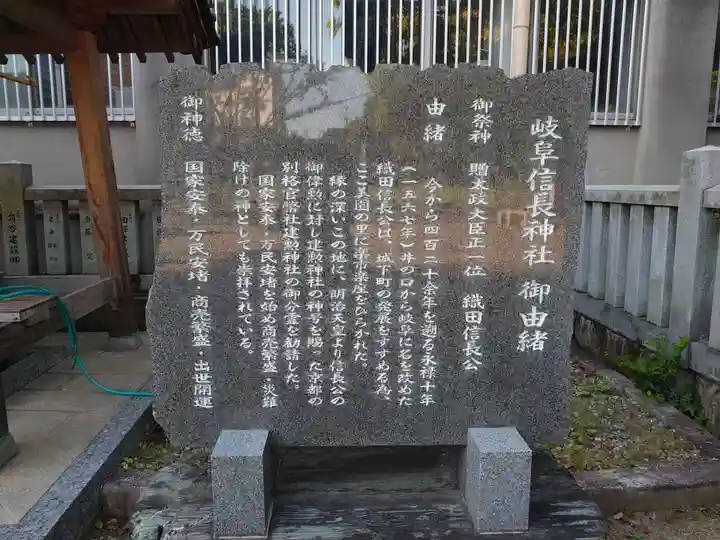 岐阜信長神社 御由緒
御祭神 贈太政大臣正一位 織田信長公
由緒
今から四百二十余年を遡る永禄十年
(一五六七年)井の口から岐阜に名を改めた
織田信長公は、城下町の発展をすすめる為、
ここ美園の里に楽市楽座をひらかれた。
縁の深いこの地に、明治天皇より信長公の
御偉勲に対し建勲神社の神号を賜った京都の
別格官幣社建勲神社の御分霊を勧請した。
国家安泰、万民安堵を始め商売繁盛、災難
除けの神としても崇拝されている。
御神徳 国家安泰・万民安堵・商売繁盛・出世開運